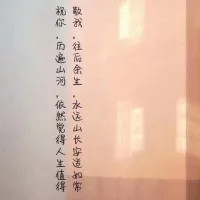 敬我，往后余生，永远山长安适如常
祝你，历遍山河，依然觉得人生值得